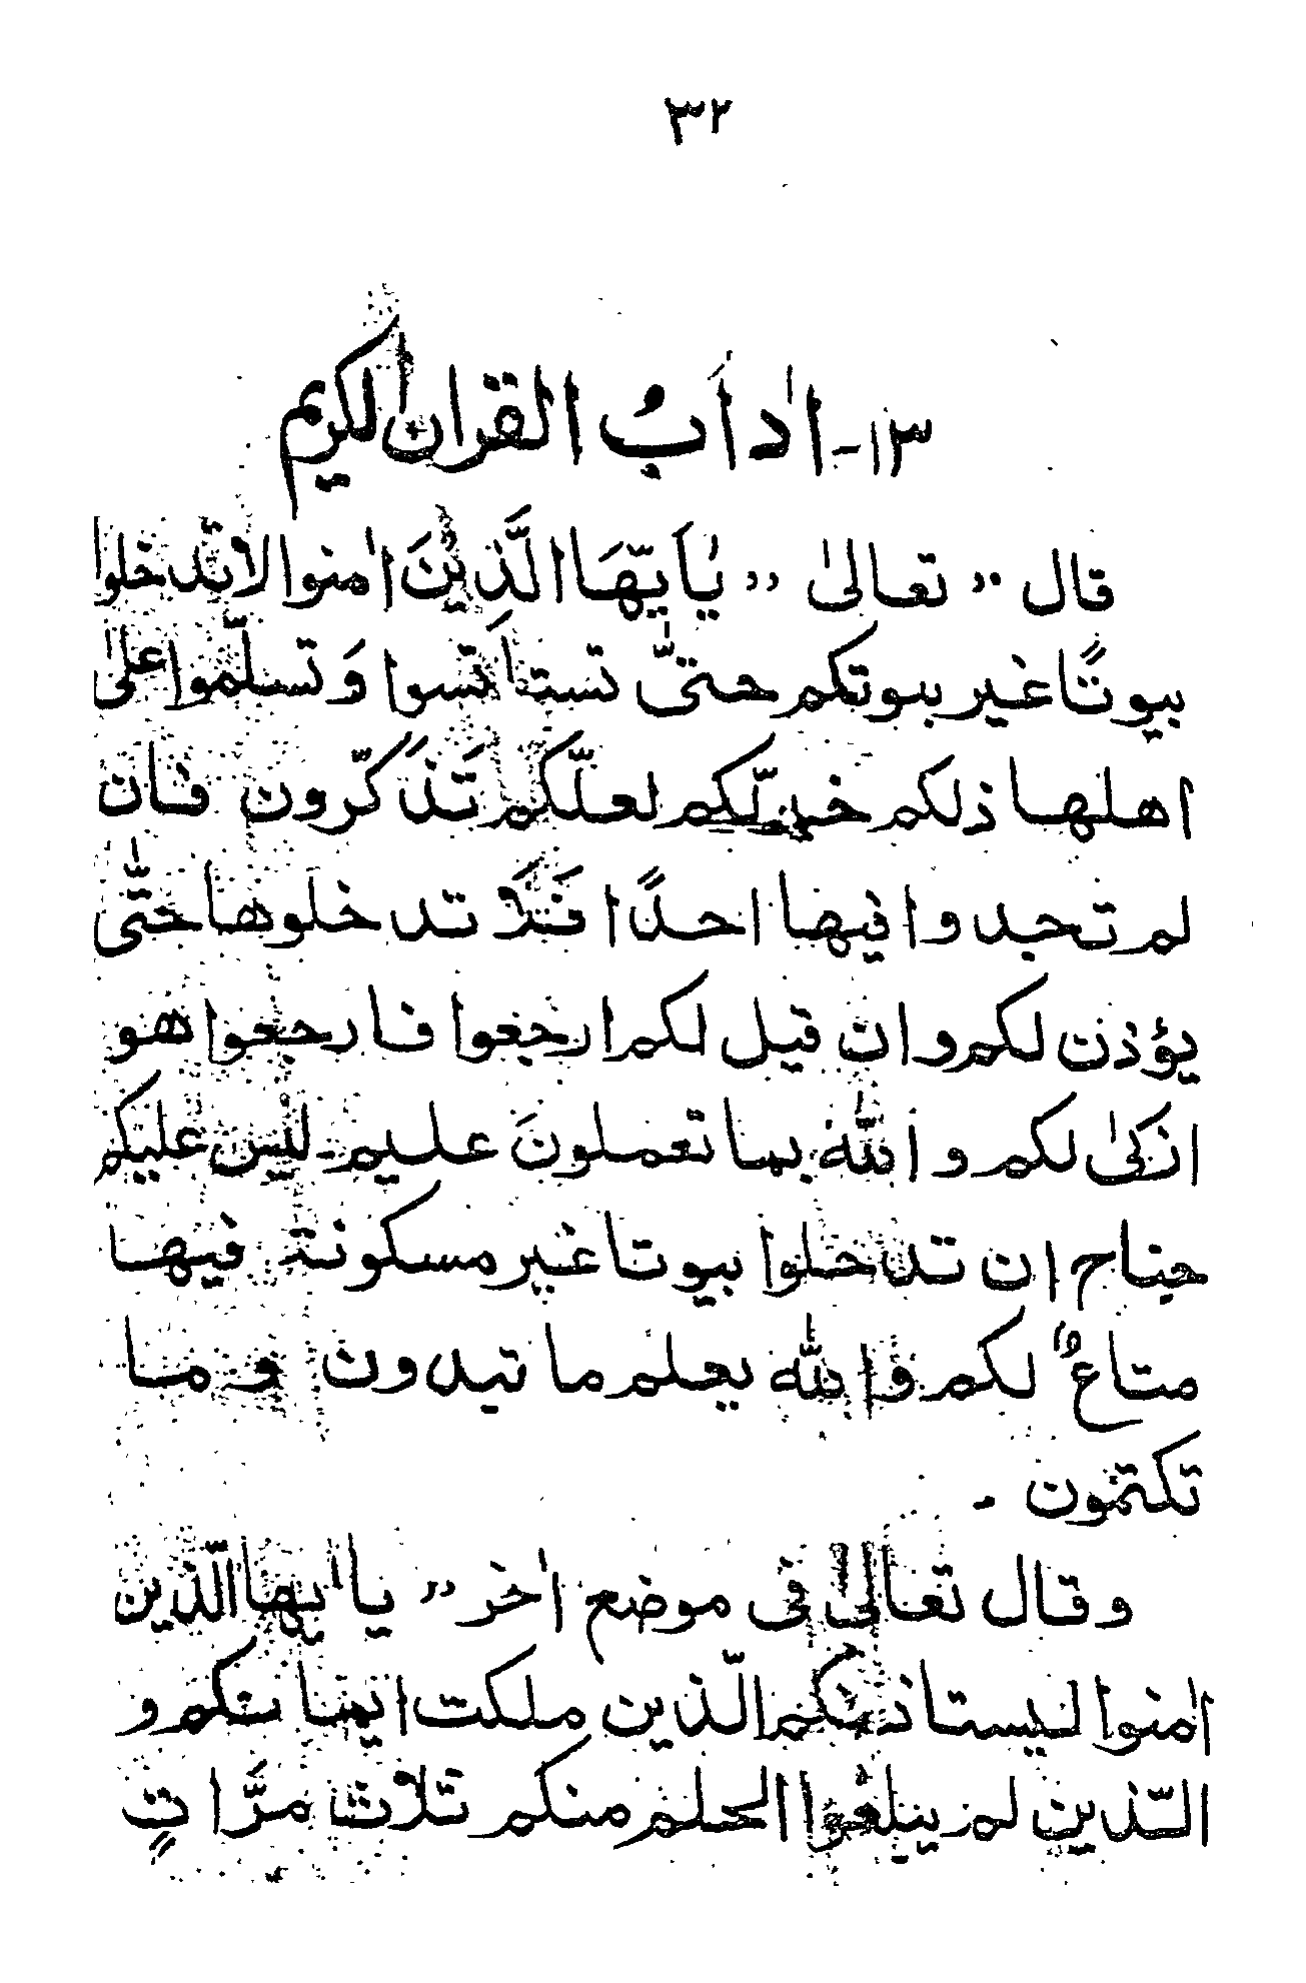 ٣٢
١٣- اٰدابُ القراٰن الكريم
قال " تعالىٰ " يٰاَيّهَا الَّذِيْنَ اٰمنوا لا تدخلوا
بيوتًا غير بيوتكم حتىّٰ تستاَنسوا وَ تسلّموا علىٰ
اهلها ذلكم خير لّكم لعلّكم تَذَكّرون فان
لم تجدوا فيها احدًا فَلَا تدخلوها حتّٰى
يؤذن لكم وان قيل لكم ارجعوا فارجعوا هو
ازكىٰ لكم و اللّٰه بما تعملونَ عليم - ليس عليكم
جناح ان تدخلوا بيوتا غير مسكونة فيها
متاعٌ لكم و اللّٰه يعلم ما تبدون و ما
تكتمون -
وقال تعالىٰ فى موضع اٰخر " يا ايها الّذين
اٰمنوا ليستاذنكم الّذين ملكت ايمانكم و
الّذين لم يبلغوا الحلم منكم ثلاث مرَّاتٍ